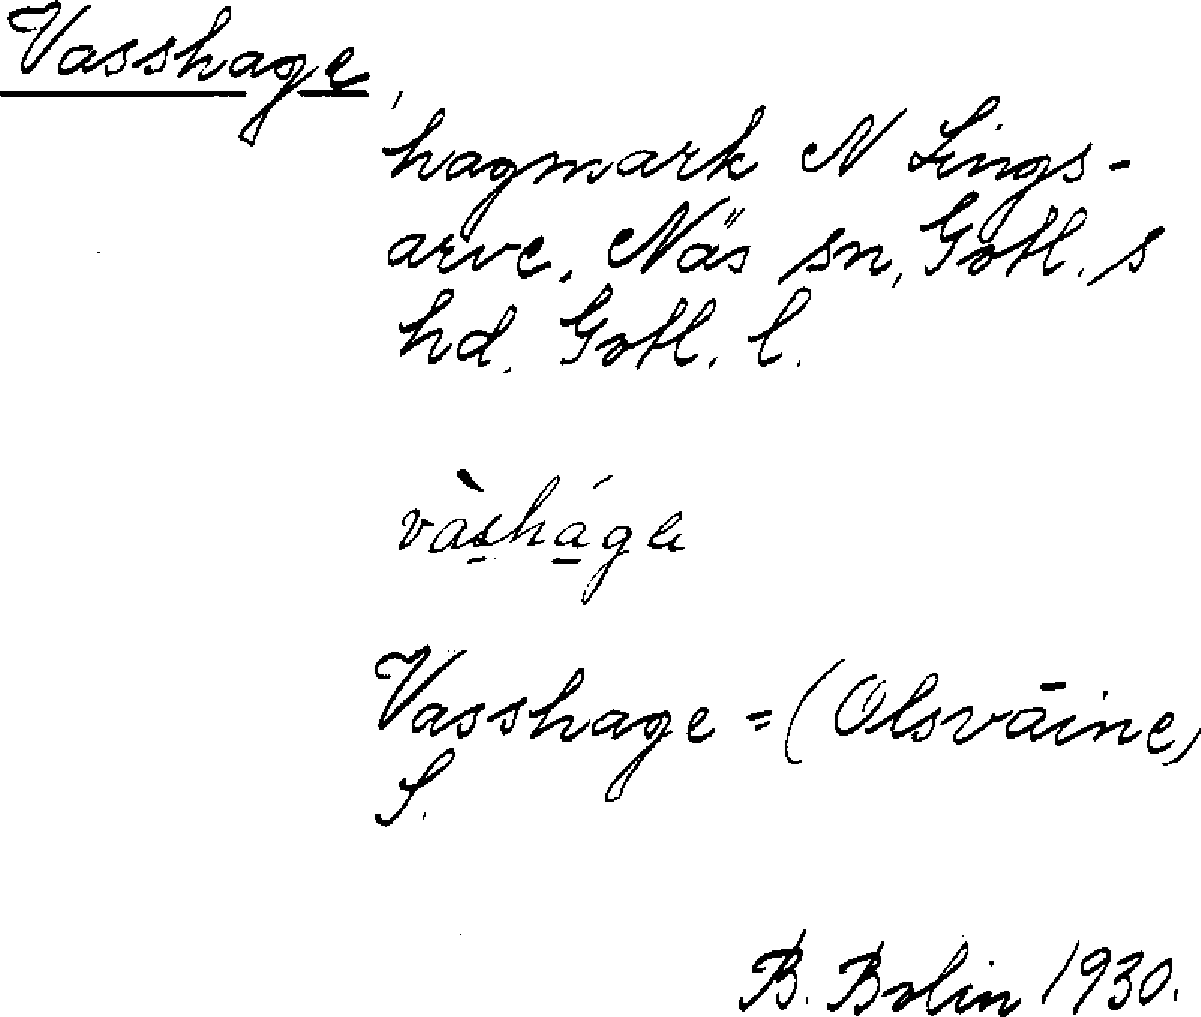 Vasshage,
hagmark N Lings-
arve, Näs sn, Gotl. s
hd. Gotl. l.
vàs̱há̱ge
Vasshage = (Olsväine,
S.
B. Bolin 1930.